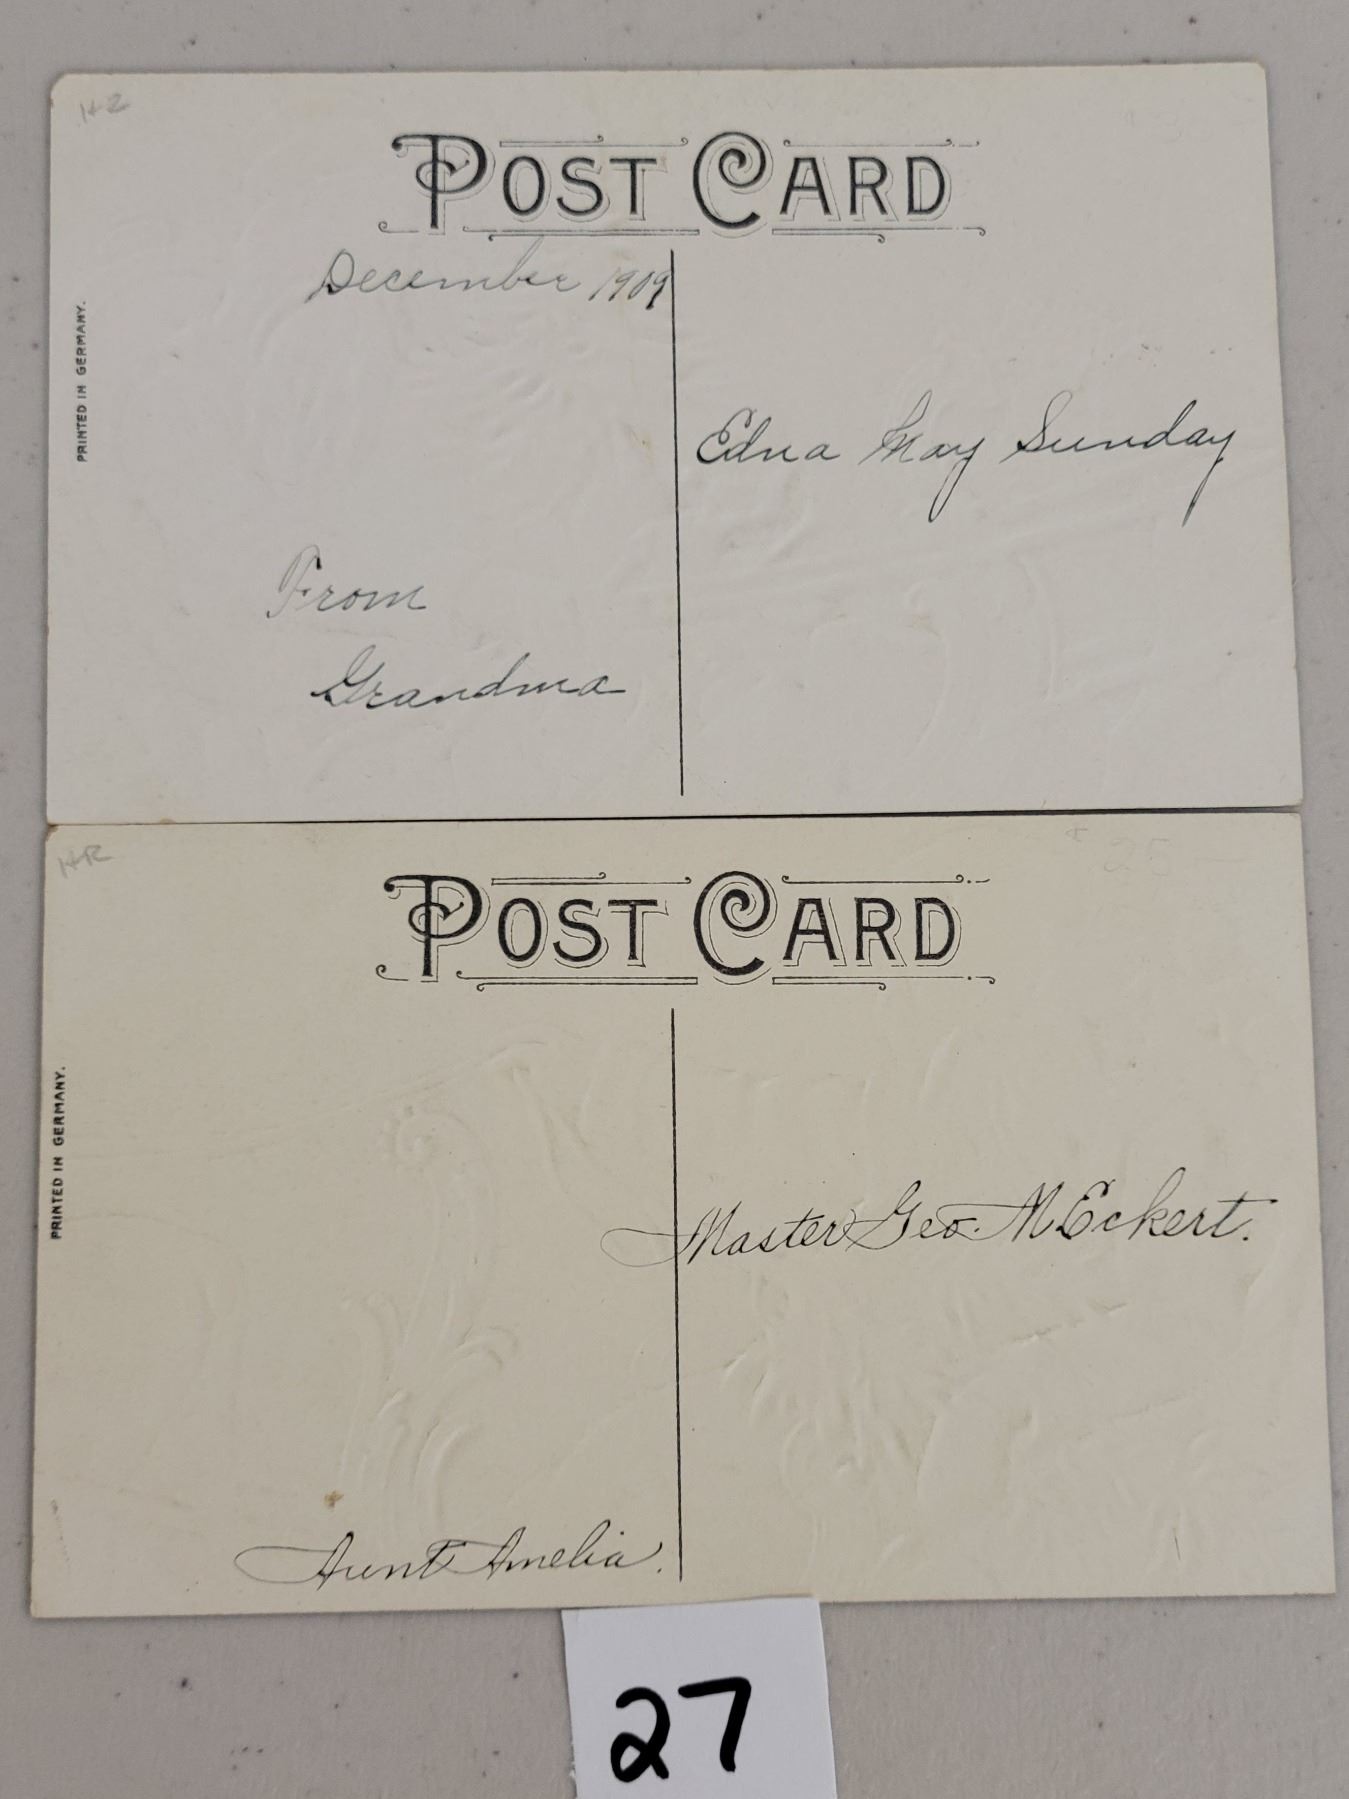 H2
POST CARD
December 1909
PRINTED IN GERMANY.
Edna May Sunday
From
Grandma
25-
POST CARD
PRINTED IN GERMANY.
Master Geo. M Eckert.
Aunt Amelia.
27